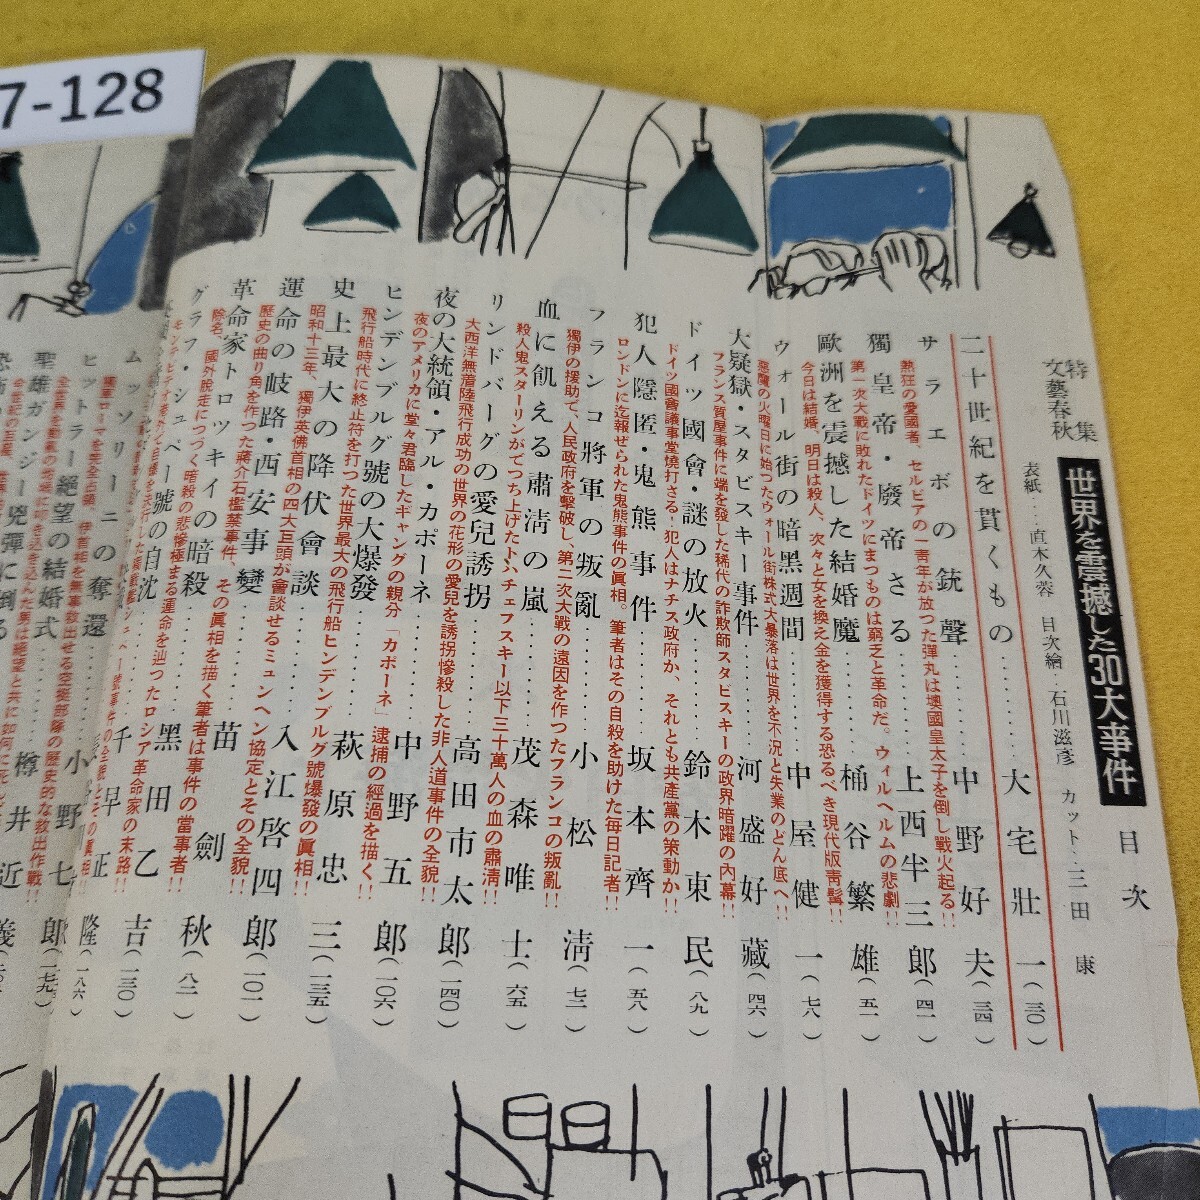 7-128
特集
文藝春秋
世界を震撼した30大事件
目次
表紙・・直木久蓉 目次繪・石川滋彦 カット・三田 康
二十世紀を貫くもの・・・・・大宅壯一(三〇)
サラエボの銃聲・・・・・中野好夫(三四)
熱狂の愛國者、セルビアの一青年が放つた彈丸は墺國皇太子を倒し戰火起る!!
獨皇帝・廢帝さる・・・・・上西半三郎(四一)
第一次大戰に敗れたドイツにまつものは窮乏と革命だ。ウィルヘルムの悲劇!!
歐洲を震撼した結婚魔・・・・・桶谷繁雄(五一)
今日は結婚、明日は殺人、次々と女を換え金を獲得する恐るべき現代版靑髯!!
ウォール街の暗黑週間・・・・・中屋健一(七八)
惡魔の火曜日に始つたウォール街株式大暴落は世界を不況と失業のどん底へ!!
大疑獄・スタビスキー事件・・・・・河盛好藏(四六)
フランス質屋事件に端を發した稀代の詐欺師スタビスキーの政界暗躍の內幕!!
ドイツ國會・謎の放火・・・・・鈴木東民(八九)
ドイツ國會議事堂燒打さる‐犯人はナチス政府か、それとも共產黨の策動か!!
犯人隱匿・鬼熊事件・・・・・坂本齊一(五八)
ロンドンに迄報ぜられた鬼熊事件の眞相。筆者はその自殺を助けた每日記者!!
フランコ將軍の叛亂・・・・・小松淸(七二)
獨伊の援助で、人民政府を擊破し、第二次大戰の遠因を作つたフランコの叛亂!!
血に飢える肅淸の嵐・・・・・茂森唯士(六五)
殺人鬼スターリンがでつち上げたトハチェフスキー以下三十萬人の血の肅淸!!
リンドバーグの愛兒誘拐・・・・・高田市太郎(一四〇)
大西洋無着陸飛行成功の世界の花形の愛兒を誘拐慘殺した非人道事件の全貌!!
夜の大統領・アル・カポーネ・・・・・中野五郎(一〇六)
夜のアメリカに堂々君臨したギャングの親分「カポーネ」逮捕の經過を描く!!
ヒンデンブルグ號の大爆發・・・・・萩原忠三(一三五)
飛行船時代に終止符を打つた世界最大の飛行船ヒンデンブルグ號爆發の眞相!!
史上最大の降伏會談・・・・・入江啓四郎(一〇一)
昭和十三年、獨伊英佛首相の四大巨頭が會談せるミュンヘン協定とその全貌!!
運命の岐路・西安事變・・・・・苗劍秋(八二)
歷史の曲り角を作つた蔣介石檻禁事件、その眞相を描く筆者は事件の當事者!!
革命家トロツキイの暗殺・・・・・黑田乙吉(一三〇)
除名、國外脫走につづく暗殺の悲慘極まる運命を辿つたロシア革命家の末路!!
グラフ・シュペー號の自沈・・・・・千早正隆(一八六)
ムッソリーニの奪還・・・・・小野七郎(一七九)
ヒットラー絕望の結婚式・・・・・
聖雄ガンジー兇彈に倒る・・・・・樽井近義